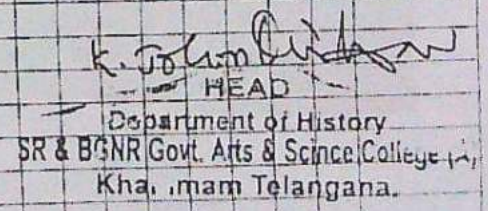 K. John
HEAD
Department of History
SR & BGNR Govt. Arts & Scince College (A),
Kha. .mam Telangana.